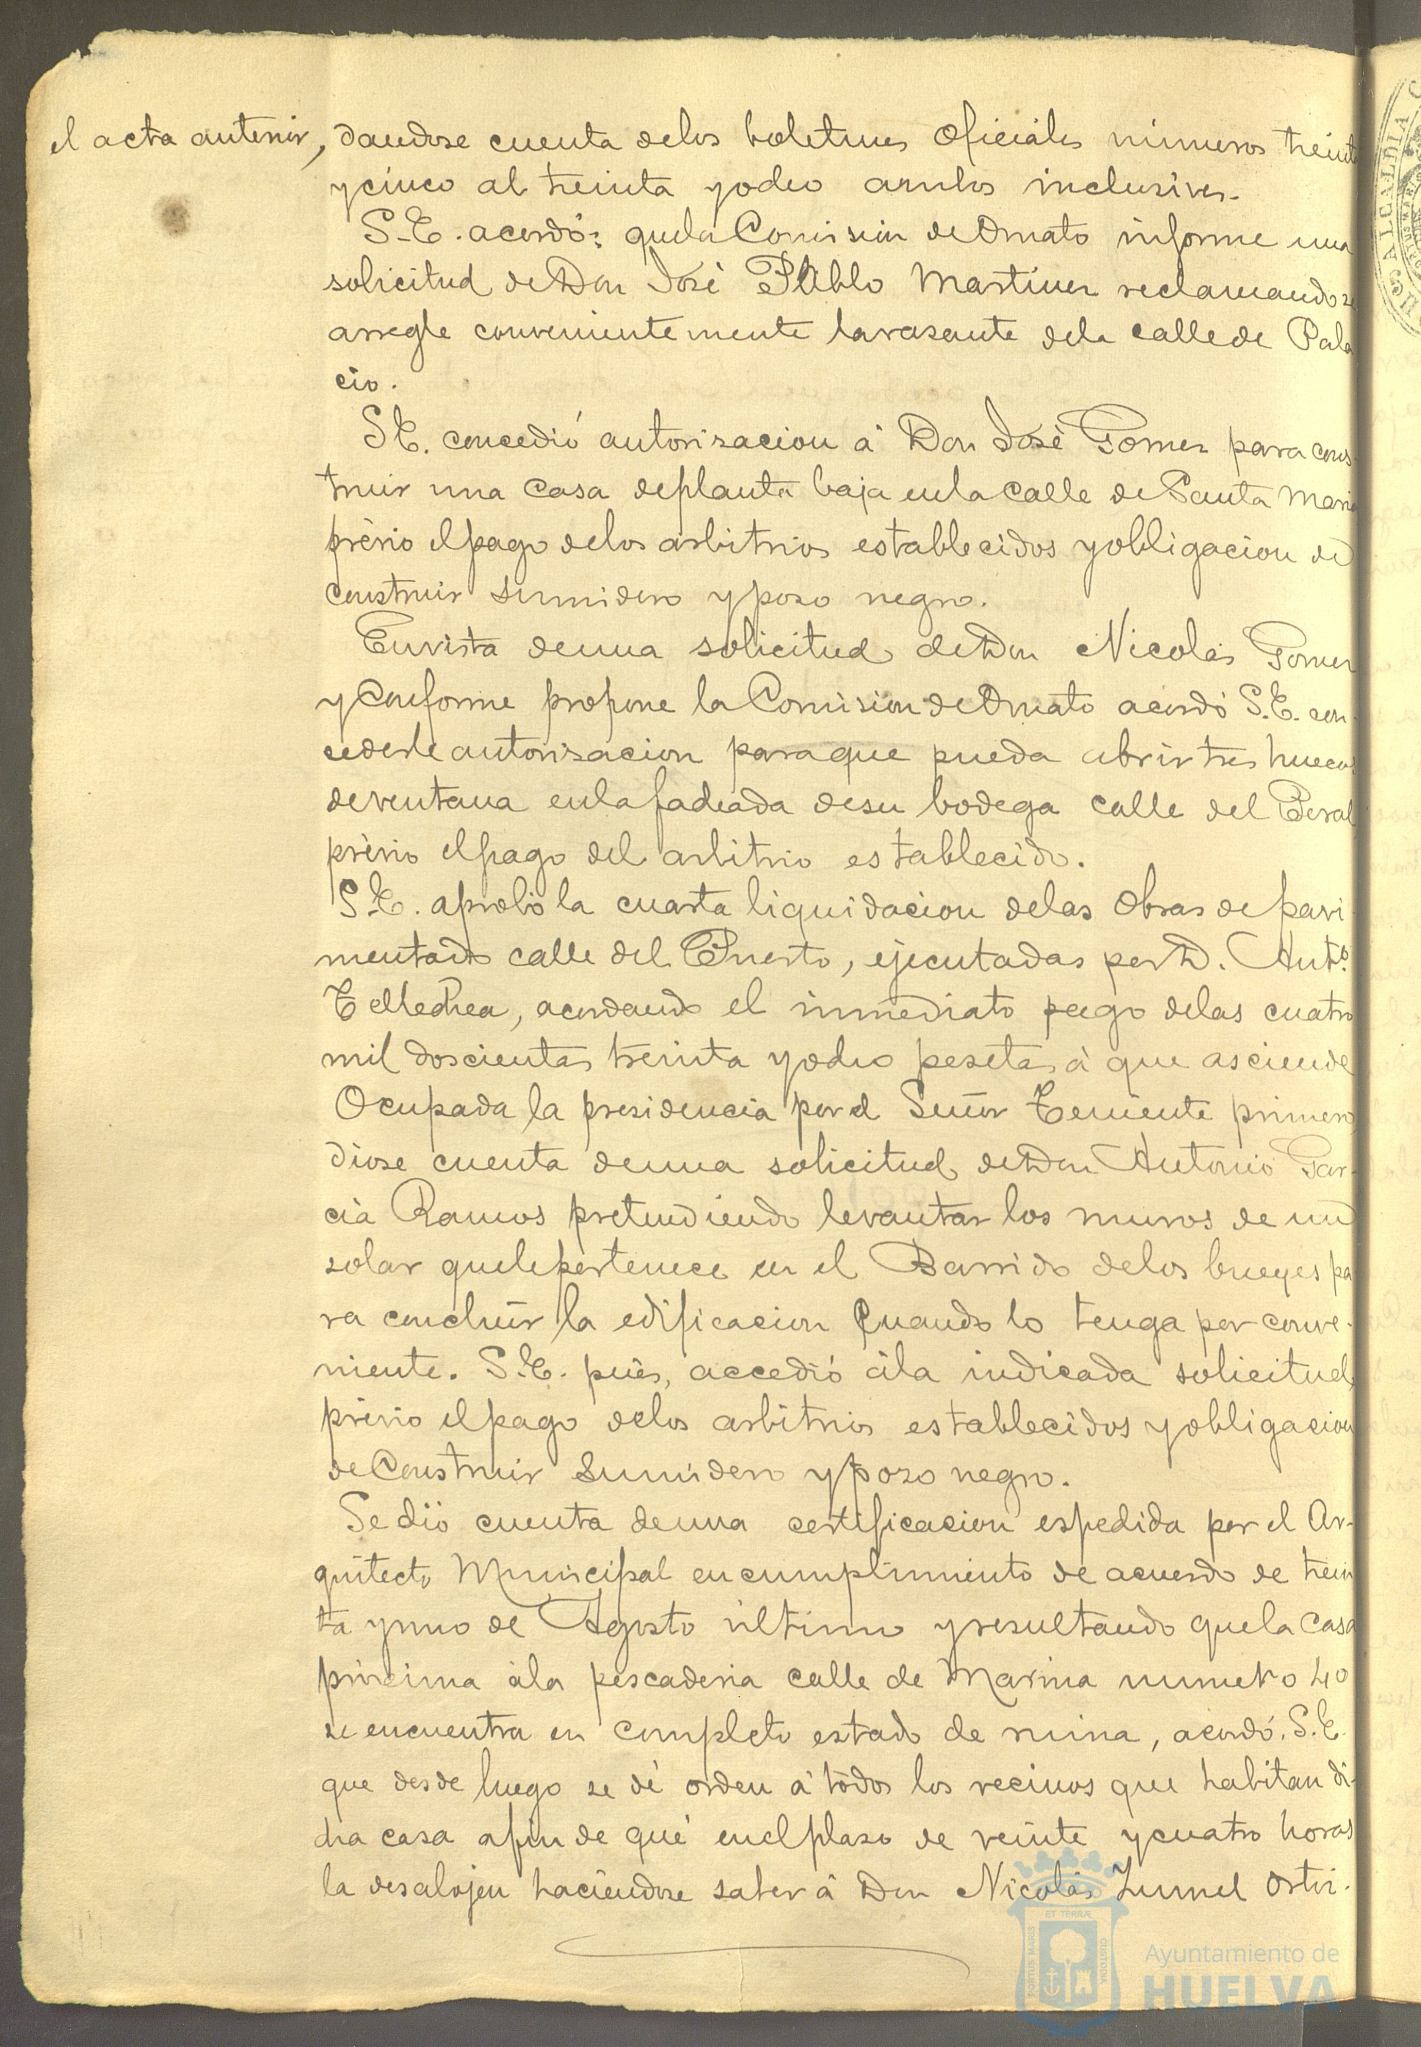 el acta anterior, dandose cuenta delos boletines Oficiales números treinta
y cinco al treinta yocho ambos inclusives.
S.E. acordó: quela Comision de Ornato informe una
solicitud de Don José Pablo Martinez reclamando se
arregle convenientemente la rasante dela calle de Pala
cio.
S.E. concedió autorisacion á Don José Gomez para cons-
truir una Casa de planta baja enla calle de Santa Maria
prévio el pago delos arbitrios establecidos y obligacion de
construir sumidero y poso negro.
En vista deuna solicitud de Don Nicolás Gomez
y conforme propone la Comision de Ornato acordó S.E. con-
cederle autorisacion para que pueda abrir tres huecos
de ventana enla fachada desu bodega calle del Peral
prévio el pago del arbitrio establecido.
S.E. aprobó la cuarta liquidacion delas Obras de pavi
mentado calle del Puerto, ejecutadas por D. Ant.º
Tellechea, acordando el inmediato pago delas cuatro
mil doscientas treinta yocho pesetas á que asciende
Ocupada la presidencia por el Señor Teniente primero
dióse cuenta deuna solicitud de Don Antonio Gar-
cía Ramos pretendiendo levantar los muros de un
solar quele pertenece en el Barrido delos bueyes pa
ra concluir la edificacion Cuando lo tenga por conve-
niente. S.E. pués, accedió ála indicada solicitud,
prévio el pago delos arbitrios establecidos y obligacion
de Construir Sumidero y poso negro.
Se dió cuenta deuna certificacion espedida por el Ar-
quitecto Municipal en cumplimiento de acuerdo de trein
ta yuno de Agosto último y resultando quela Casa
próxima ála pescaderia calle de Marina numero 40
se encuentra en completo estado de ruina, acordó S.E.
que desde luego se dé orden á todos los vecinos que habitan di-
cha casa afin de qué enel plaso de veinte y cuatro horas
la desalojen haciéndose saber á Don Nicolás Zumel Orti-
PORTUS MARIS
ET TERRÆ
CUSTODIA
Ayuntamiento de
HUELVA
ALCALDIA